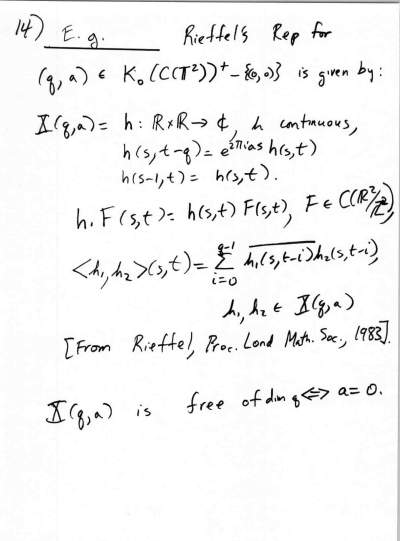 14) E.g. Rieffel's Rep for
(q,a) ∈ K₀(C(T²))⁺ - {(0,0)} is given by:
X(q,a) = h: R×R → ₵, h continuous,
h(s,t-q) = e^{2πias} h(s,t)
h(s-1,t) = h(s,t).
h.F(s,t) = h(s,t) F(s,t), F ∈ C(R²/Z²),
<h₁,h₂>(s,t) = Σ_{i=0}^{q-1} \overline{h₁(s,t-i)} h₂(s,t-i),
h₁, h₂ ∈ X(q,a)
[From Rieffel, Proc. Lond Math. Soc., 1983].
X(q,a) is free of dim q ⇔ a=0.